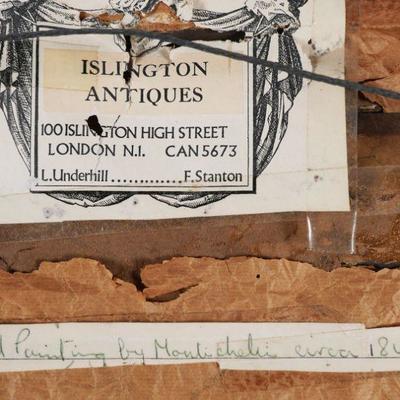 ISLINGTON
ANTIQUES
100 ISLINGTON HIGH STREET
LONDON N.I. CAN 5673
L.Underhill.............F.Stanton
Painting by Montichelli circa 18